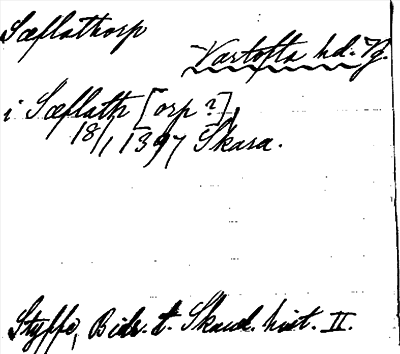 Sæflathorp
Vartofta hd. Vg.
i Sæflath [orp?],
18/1 1397 Skara.
Styffe, Bidr. t. Skand. hist. II.